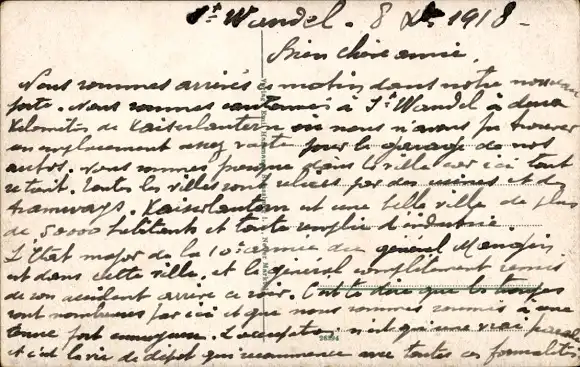 St Wandel. 8 Xbre 1918 -
Bien chère amie,
Nous sommes arrivés ce matin dans notre nouveau
poste. Nous sommes cantonnés à St Wandel à deux
kilomètres de Kaiserlautern où nous n'avons pu trouver
un emplacement assez vaste pour le garage de nos
autos. Nous sommes presque dans la ville car ici tout
se tient. Toutes les villes sont reliées par des usines et des
tramways. Kaiserlautern est une belle ville de plus
de 50000 habitants et toute remplie d'industrie.
L'Etat major de la 10e armée du général Mangin
est dans cette ville, et le général complètement remis
de son accident arrive ce soir. C'est te dire que les troupes
sont nombreuses par ici et que nous sommes soumis à une
tenue fort ennuyeuse. L'occupation n'est qu'une vraie parade
et c'est la vie de dépôt qui recommence avec toutes ces formalités
26394